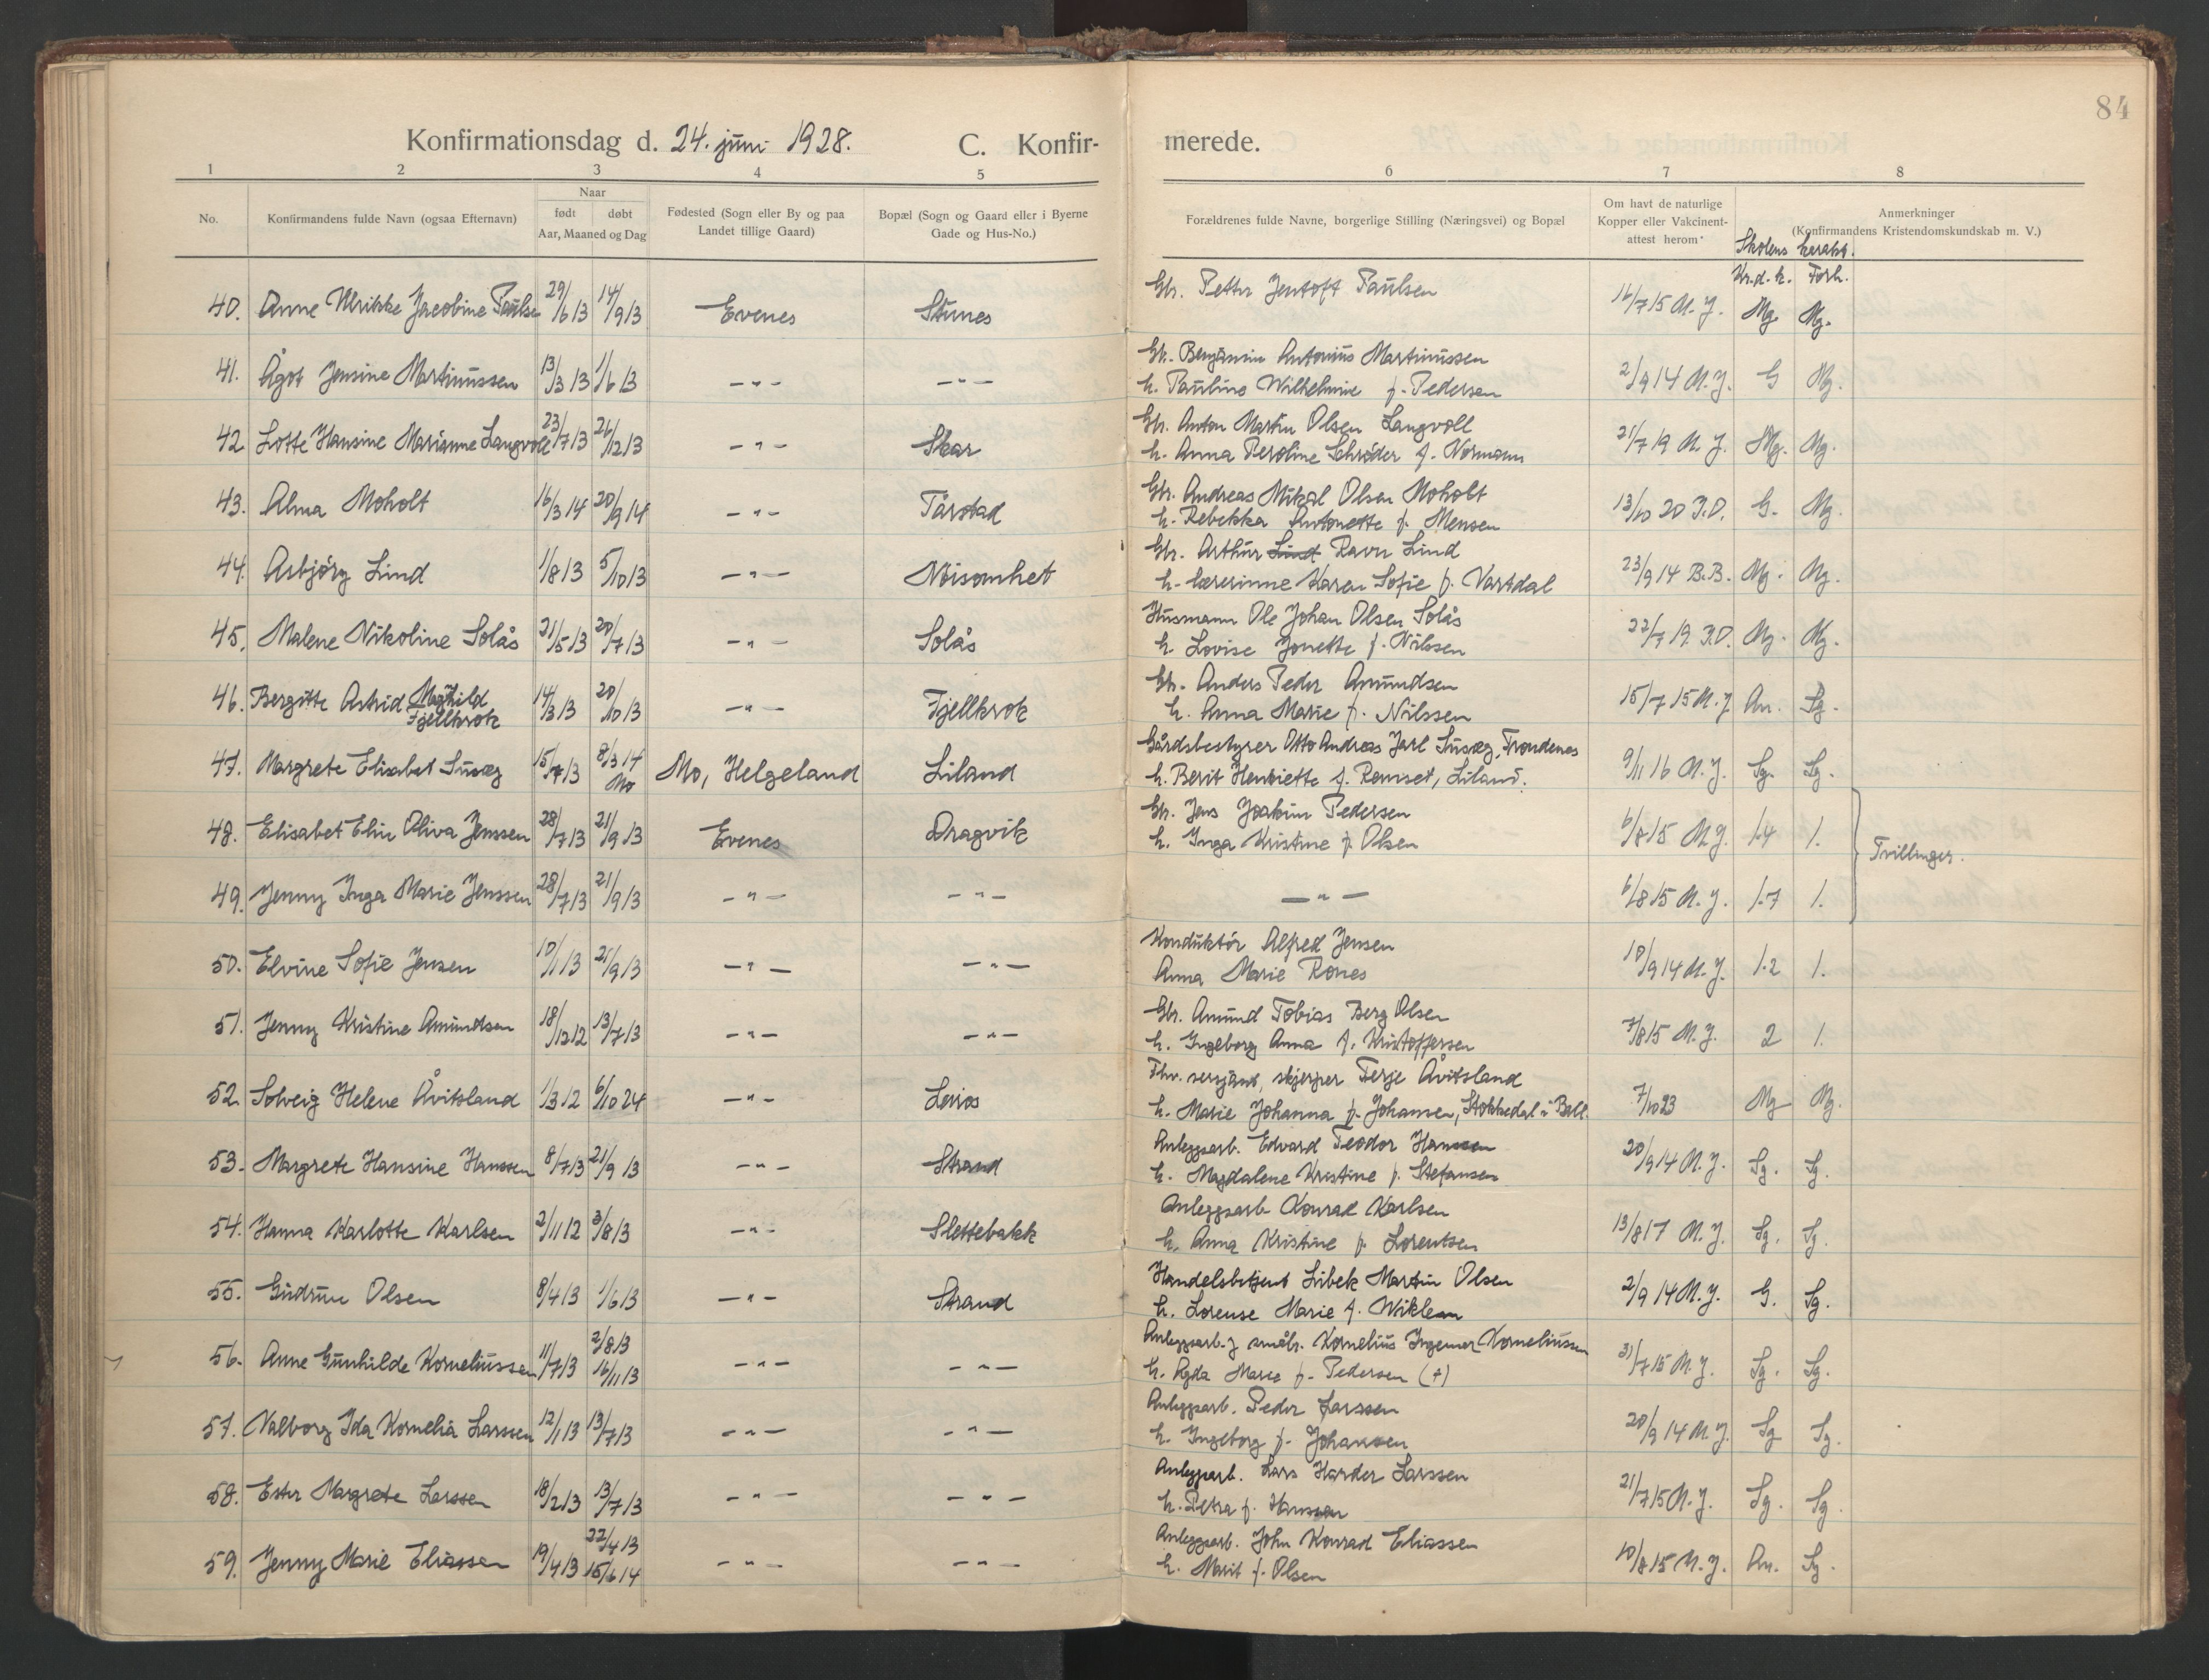 84
Konfirmationsdag d. 24. juni 1928. C. Konfir- merede.
1 2 3 4 5 6 7 8
No. Konfirmandens fulde Navn (ogsaa Efternavn) Naar født døbt Aar, Maaned og Dag Fødested (Sogn eller By og paa Landet tillige Gaard) Bopæl (Sogn og Gaard eller i Byerne Gade og Hus-No.) Forældrenes fulde Navne, borgerlige Stilling (Næringsvei) og Bopæl Om havt de naturlige Kopper eller Vakcinent- attest herom Anmerkninger (Konfirmandens Kristendomskundskab m. V.)
Skolens karakt.
Kr.d.k. Forh.
40. Anne Ulrikke Jacobine Paulsen 29/6 13 14/9 13 Evenes Stunes Gbr. Petter Jentoft Paulsen 16/7 15 M. J. Mg. Mg.
41. Ågot Jensine Martinussen 13/3 13 1/6 13 -"- -"- Gbr. Benjamin Antonius Martinussen
h. Pauline Wilhelmine f. Pedersen 2/9 14 M. J. G Mg.
42 Lotte Hansine Marianne Langvoll 23/7 13 26/12 13 -"- Skar Gbr. Anton Martin Olsen Langvoll
h. Anna Peroline Schrøder f. Normann 21/7 19 M. J. Mg. Mg.
43. Alma Moholt 16/3 14 20/9 14 -"- Tårstad Gbr. Andreas Mikal Olsen Moholt
h. Rebekka Antonette f. Mensen 13/10 20 P.D. G. Mg.
44. Asbjörg Lind 1/8 13 5/10 13 -"- Nöisomhet Gbr. Arthur Lind Ravn Lind
h. lærerinne Karen Sofie f. Vartdal 23/9 14 B.B. Mg. Mg.
45. Malene Nikoline Solås 21/5 13 20/7 13 -"- Solås Husmann Ole Johan Olsen Solås
h. Lovise Jonette f. Nilssen 22/7 19 P.D. Mg. Mg.
46. Bergitte Astrid Maghild Fjellkrok 14/3 13 20/10 13 -"- Fjellkrok Gbr. Anders Peder Amundsen
h. Anna Marie f. Nilssen 15/7 15 M. J. An. Sg.
47. Margrete Elisabet Susæg 15/7 13 8/3 14 Mo Mo, Helgeland Liland Gårdsbestyrer Otto Andreas Jarl Susæg, Trondenes
h. Berit Henriette f. Remset, Liland. 9/11 16 M. J. Sg. Sg.
48. Elisabet Elin Oliva Jenssen 28/7 13 21/9 13 Evenes Dragvik Gbr. Jens Joakim Pedersen
h. Inga Kristine f. Olsen 6/8 15 M. J. 1.4 1.
Tvillinger.
49. Jenny Inga Marie Jenssen 28/7 13 21/9 13 -"- -"- -"- 6/8 15 M. J. 1.7 1.
50. Elvine Sofie Jensen 10/1 13 21/9 13 -"- -"- Konduktör Alfred Jensen
Anna Marie Rones 10/9 14 M. J. 1.2 1.
51. Jenny Kristine Amundsen 18/12 12 13/7 13 -"- -"- Gbr. Amund Tobias Berg Olsen
h. Ingeborg Anna f. Kristoffersen 7/8 15 M. J. 2 1.
52. Solveig Helene Åvitsland 1/3 12 6/10 24 -"- Fhv. sersjant, skjerper Terje Åvitsland
h. Marie Johanna f. Johansen, Stokkedal i Ball. 7/10 23 Mg Mg.
53. Margrete Hansine Hanssen 8/7 13 21/9 13 -"- Strand Anleggsarb. Edvard Teodor Hanssen
h. Magdalene Kristine f. Stefansen 20/9 14 M. J. Sg. Sg.
54. Hanna Karlotte Karlsen 2/11 12 3/8 13 -"- Slettebakk Anleggsarb Konrad Karlsen
h. Anna Kristine f. Lorentsen 13/8 17 M. J. Sg. Sg.
55. Gudrun Olsen 8/4 13 1/6 13 -"- Strand Handelsbetjent Libek Martin Olsen
h. Lorense Marie f. Wiklem 2/9 14 M. J. G. Sg.
56. Anne Gunhilde Korneliussen 11/7 13 2/8 13 16/11 13 -"- -"- Anleggsarb. j småbr. Kornelius Ingemar Korneliussen
h. Agda Marie f. Pedersen (+) 31/7 15 M. J. Sg. Sg.
57. Valborg Ida Kornelia Larssen 12/1 13 13/7 13 -"- -"- Anleggsarb. Peder Larssen
h. Ingeborg f. Johansen 20/9 14 M. J. Sg Sg.
58. Ester Margrete Larssen 18/2 13 13/7 13 -"- -"- Anleggsarb. Lars Harder Larssen
h. Petra f. Hanssen 21/7 15 M. J. Sg. Sg
59. Jenny Marie Eliassen 19/4 13 22/4 13 15/6 14 -"- -"- Anleggsarb. John Konrad Eliassen
h. Marit f. Olsen 10/8 15 M. J. An. Sg.